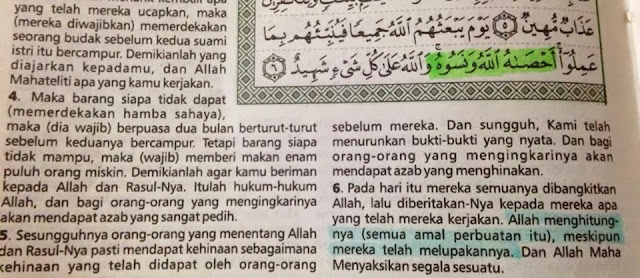 yang telah mereka ucapkan, maka
(mereka diwajibkan) memerdekakan
seorang budak sebelum kedua suami
istri itu bercampur. Demikianlah yang
diajarkan kepadamu, dan Allah
Mahateliti apa yang kamu kerjakan.
4. Maka barang siapa tidak dapat
(memerdekakan hamba sahaya),
maka (dia wajib) berpuasa dua bulan berturut-turut
sebelum keduanya bercampur. Tetapi barang siapa
tidak mampu, maka (wajib) memberi makan enam
puluh orang miskin. Demikianlah agar kamu beriman
kepada Allah dan Rasul-Nya. Itulah hukum-hukum
Allah, dan bagi orang-orang yang mengingkarinya
akan mendapat azab yang sangat pedih.
5. Sesungguhnya orang-orang yang menentang Allah
dan Rasul-Nya pasti mendapat kehinaan sebagaimana
kehinaan yang telah didapat oleh orang-orang
عَذَابٌ مُّهِينٌ ۝٥ يَوْمَ يَبْعَثُهُمُ اللّٰهُ جَمِيعًا فَيُنَبِّئُهُم بِمَا
عَمِلُوٓا۟ أَحْصَىٰهُ اللّٰهُ وَنَسُوهُ ۚ وَاللّٰهُ عَلَىٰ كُلِّ شَىْءٍ شَهِيدٌ ۝٦
sebelum mereka. Dan sungguh, Kami telah
menurunkan bukti-bukti yang nyata. Dan bagi
orang-orang yang mengingkarinya akan
mendapat azab yang menghinakan.
6. Pada hari itu mereka semuanya dibangkitkan
Allah, lalu diberitakan-Nya kepada mereka apa
yang telah mereka kerjakan. Allah menghitung-
nya (semua amal perbuatan itu), meskipun
mereka telah melupakannya. Dan Allah Maha
Menyaksikan segala sesuatu.